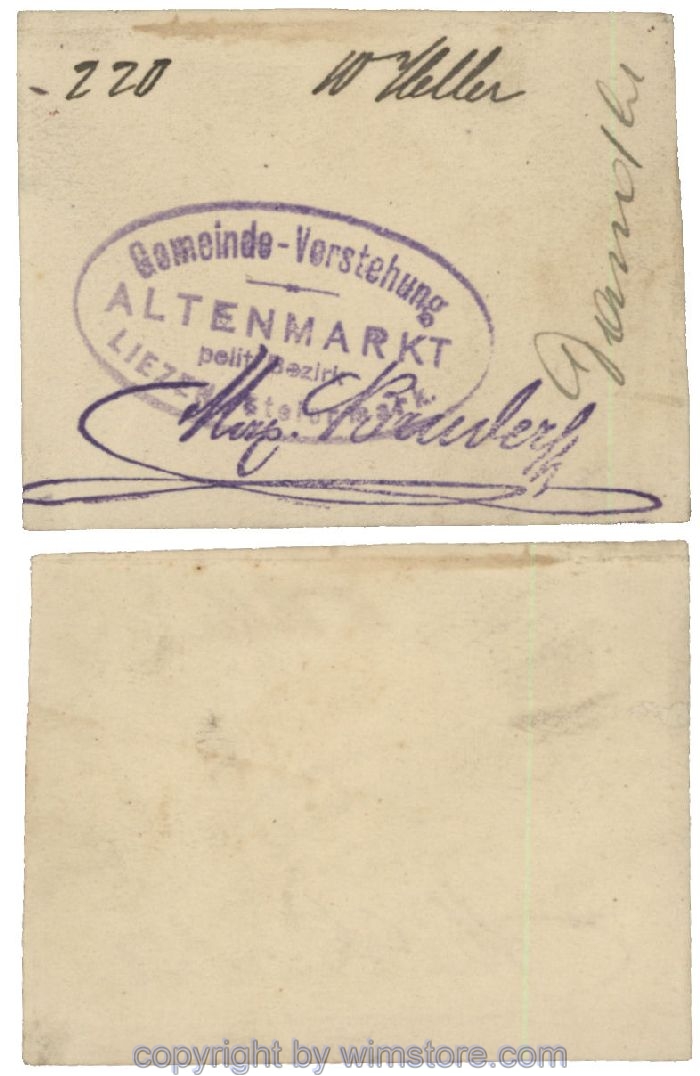 - 220 10 Heller
Gemeinde-Vorstehung
ALTENMARKT
polit. Bezirk
LIEZEN Steiermark.
copyright by wimstore.com